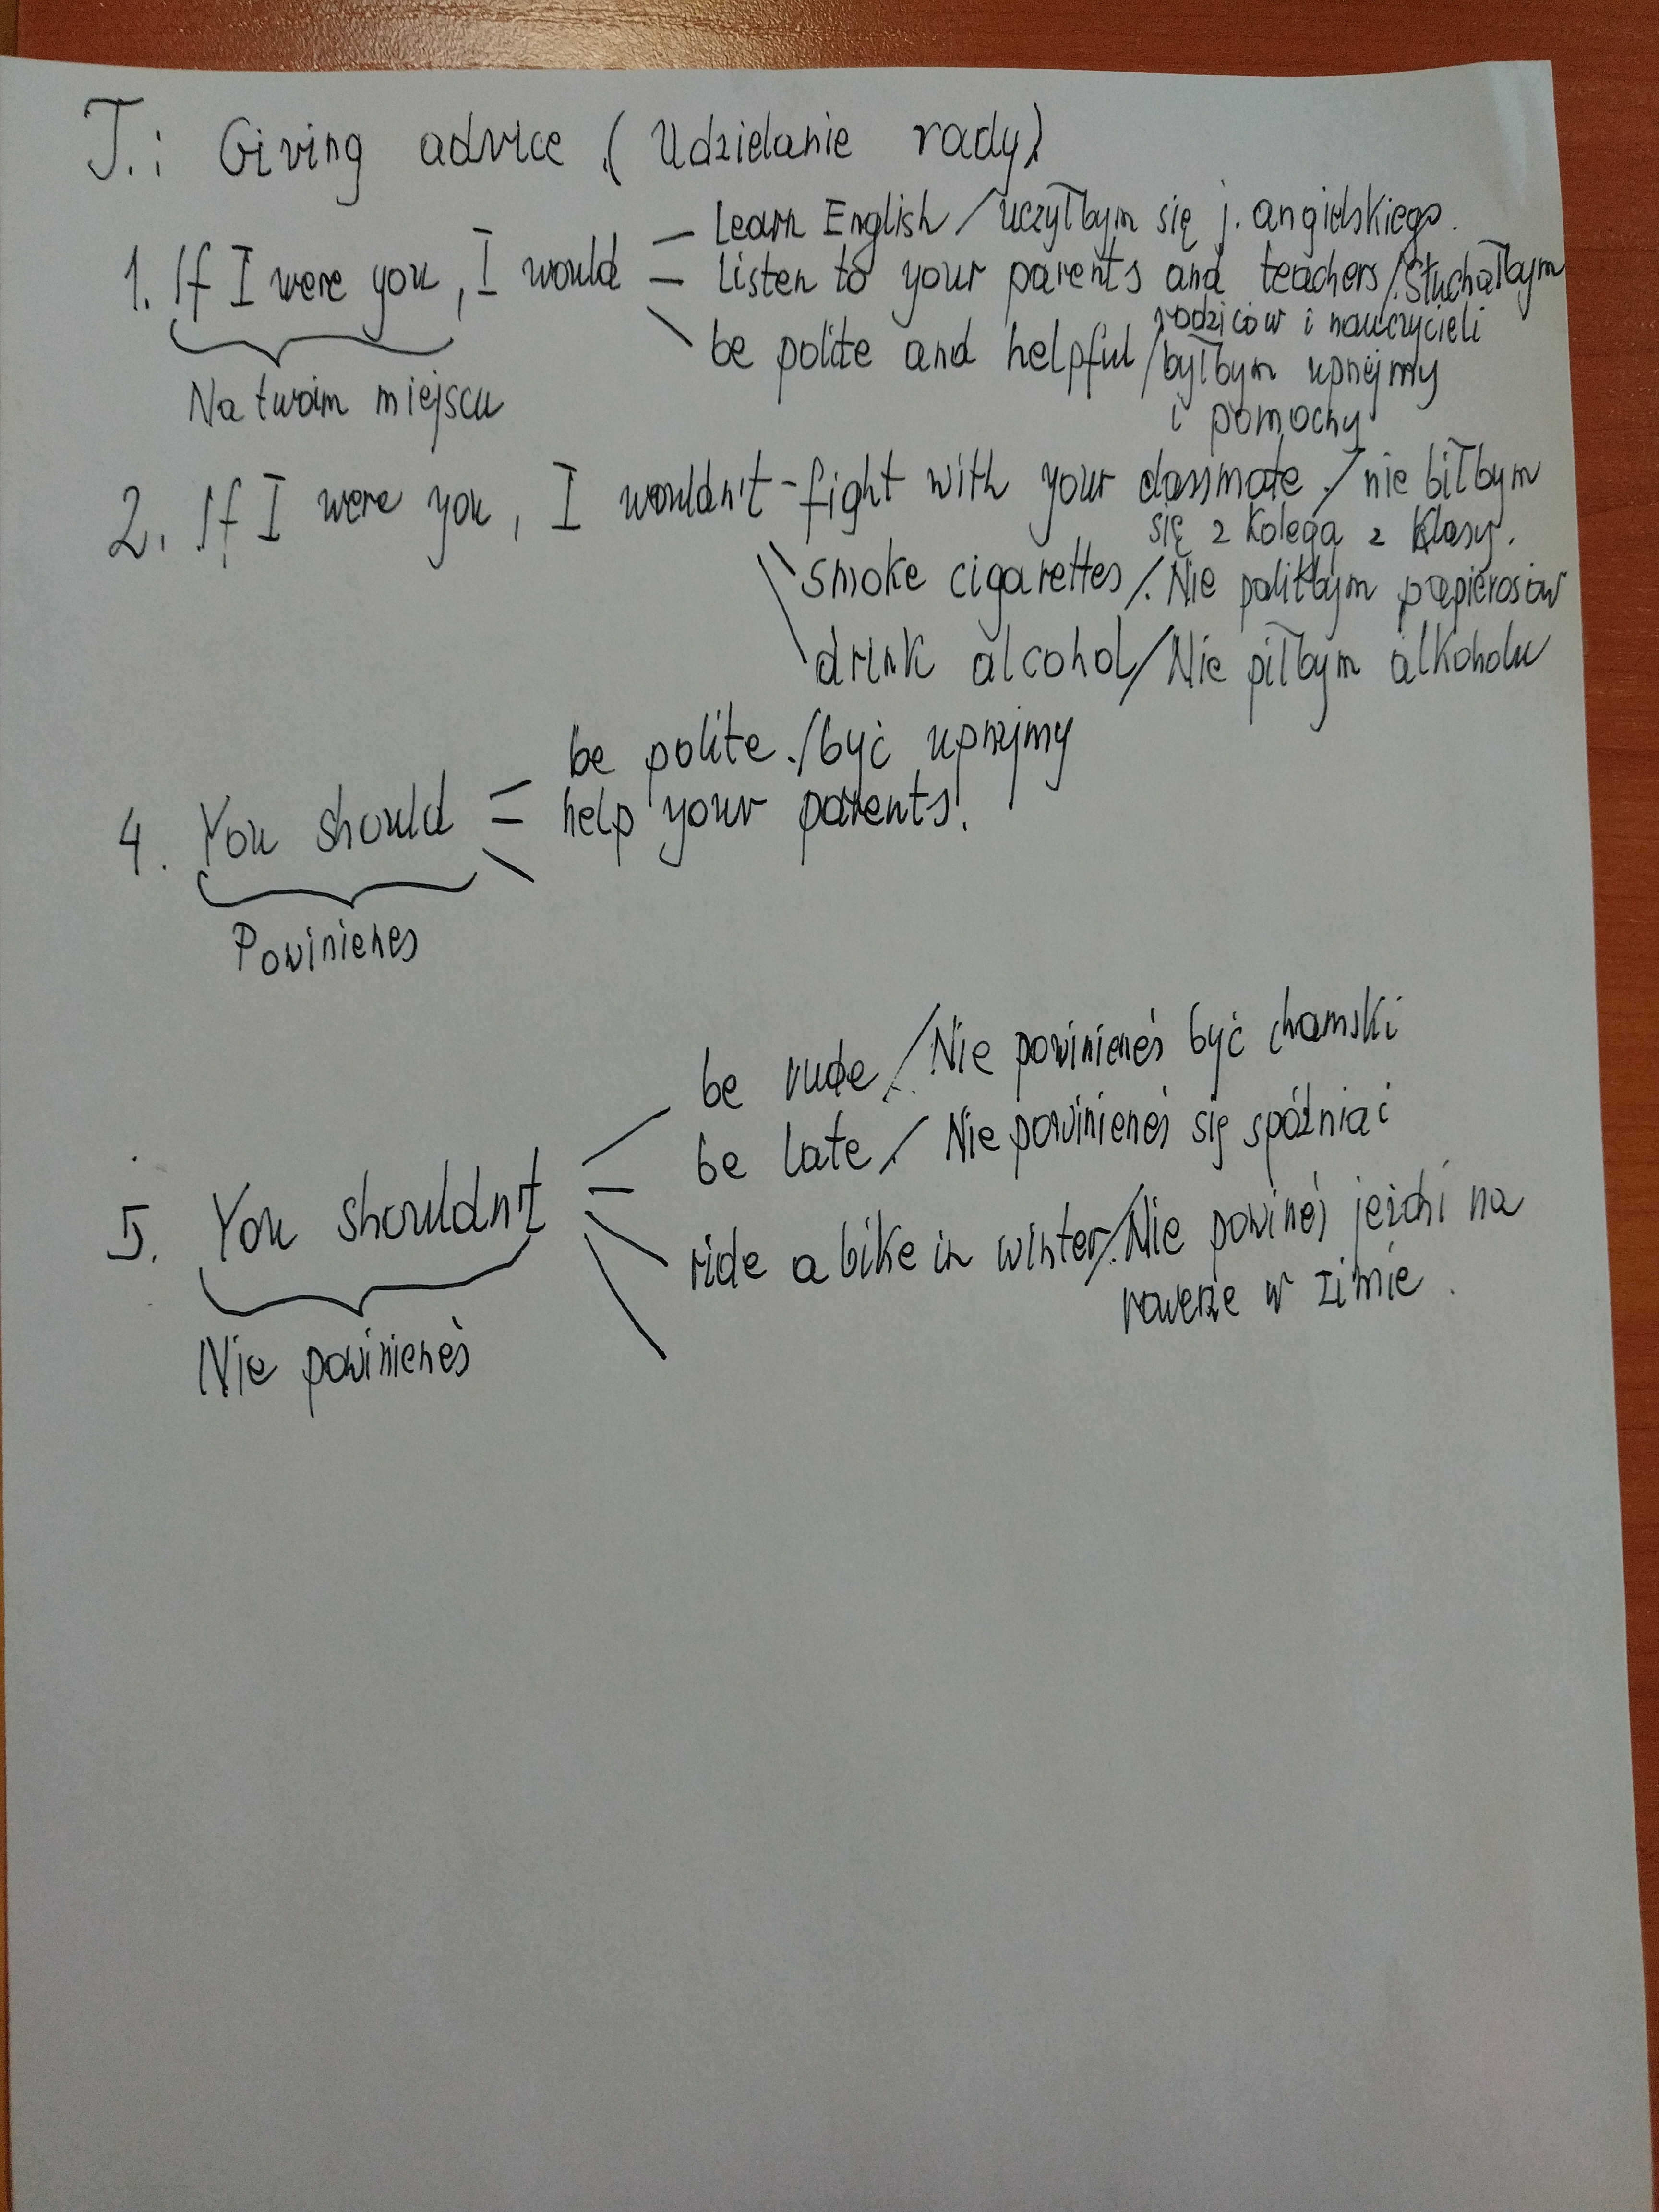 T.: Giving advice (Udzielanie rady)
learn English / uczyłbym się j. angielskiego.
1. If I were you, I would listen to your parents and teachers / słuchałbym
rodziców i nauczycieli
be polite and helpful / byłbym uprzejmy
Na twoim miejscu
i pomocny
2. If I were you, I wouldn't - fight with your classmate / nie biłbym
się z kolegą z klasy.
smoke cigarettes / Nie paliłbym papierosów
drink alcohol / Nie piłbym alkoholu
be polite. / być uprzejmy
4. You should help your parents.
Powinieneś
be rude / Nie powinieneś być chamski
be late / Nie powinieneś się spóźniać
5. You shouldn't
ride a bike in winter / Nie powineś jeździ na
rowerze w zimie.
Nie powinieneś